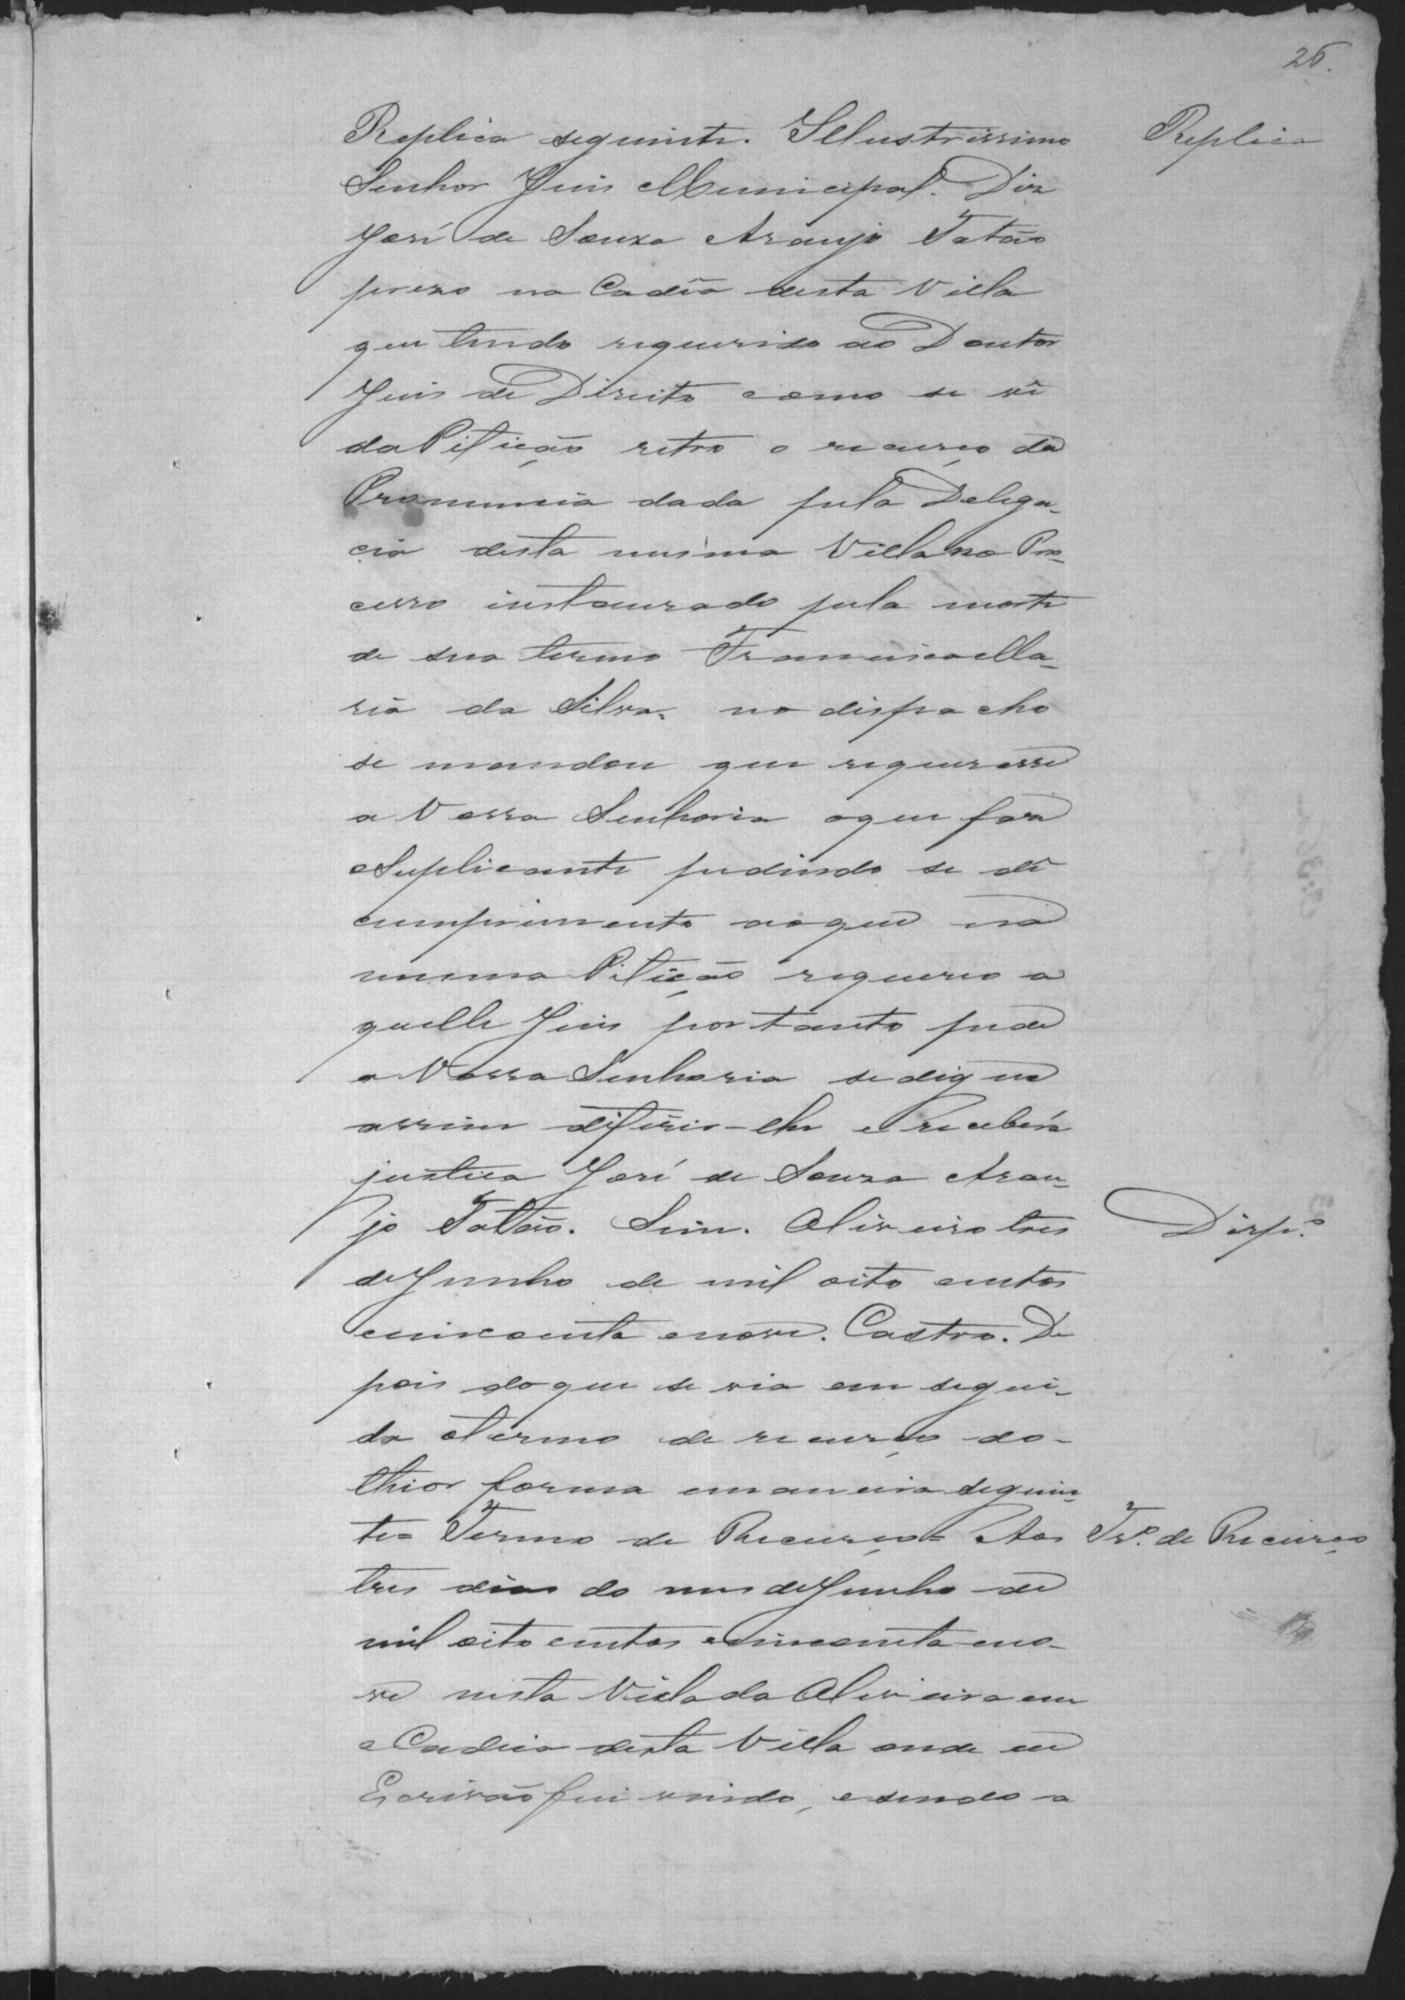 26.
Replica seguinte. Illustrissimo
Replica
Senhor Juis Municipal. Diz
José de Souza Araujo Tatão
prezo na Cadêa desta Villa
que tendo requerido ao Doutor
Juis de Direito como se vê
da Pitição retro o recurço da
Pronuncia dada pela Delega-
cia desta mesma Villa no Pro-
cesso instaurado pela morte
de sua termo Francisca Ma-
ria da Silva. no dispacho
se mandou que requeresse
a Vossa Senhoria o que faz o
Suplicante pedindo se dê
cumprimento ao que na
mesma Pitição requereo a
quelle Juis portanto pede
a Vossa Senhoria se digne
assim difirir-lhe e Receberá
justica José de Souza Arau-
jo Tatão. Sim. Oliveira tres
Disp.º
de Junho de mil oito centos
cincoenta enove. Castro. De
pois do que se via em segui-
da o termo de recurço do
thior forma emaneira seguin-
te = Termo de Recurço = Aos
Tr.º de Recurço
tres dias do mes de Junho de
mil oito centos e cincoenta eno-
ve nesta Villa da Oliveira em
a Cadeia desta Villa onde eu
Escrivão fui vindo, e sendo a